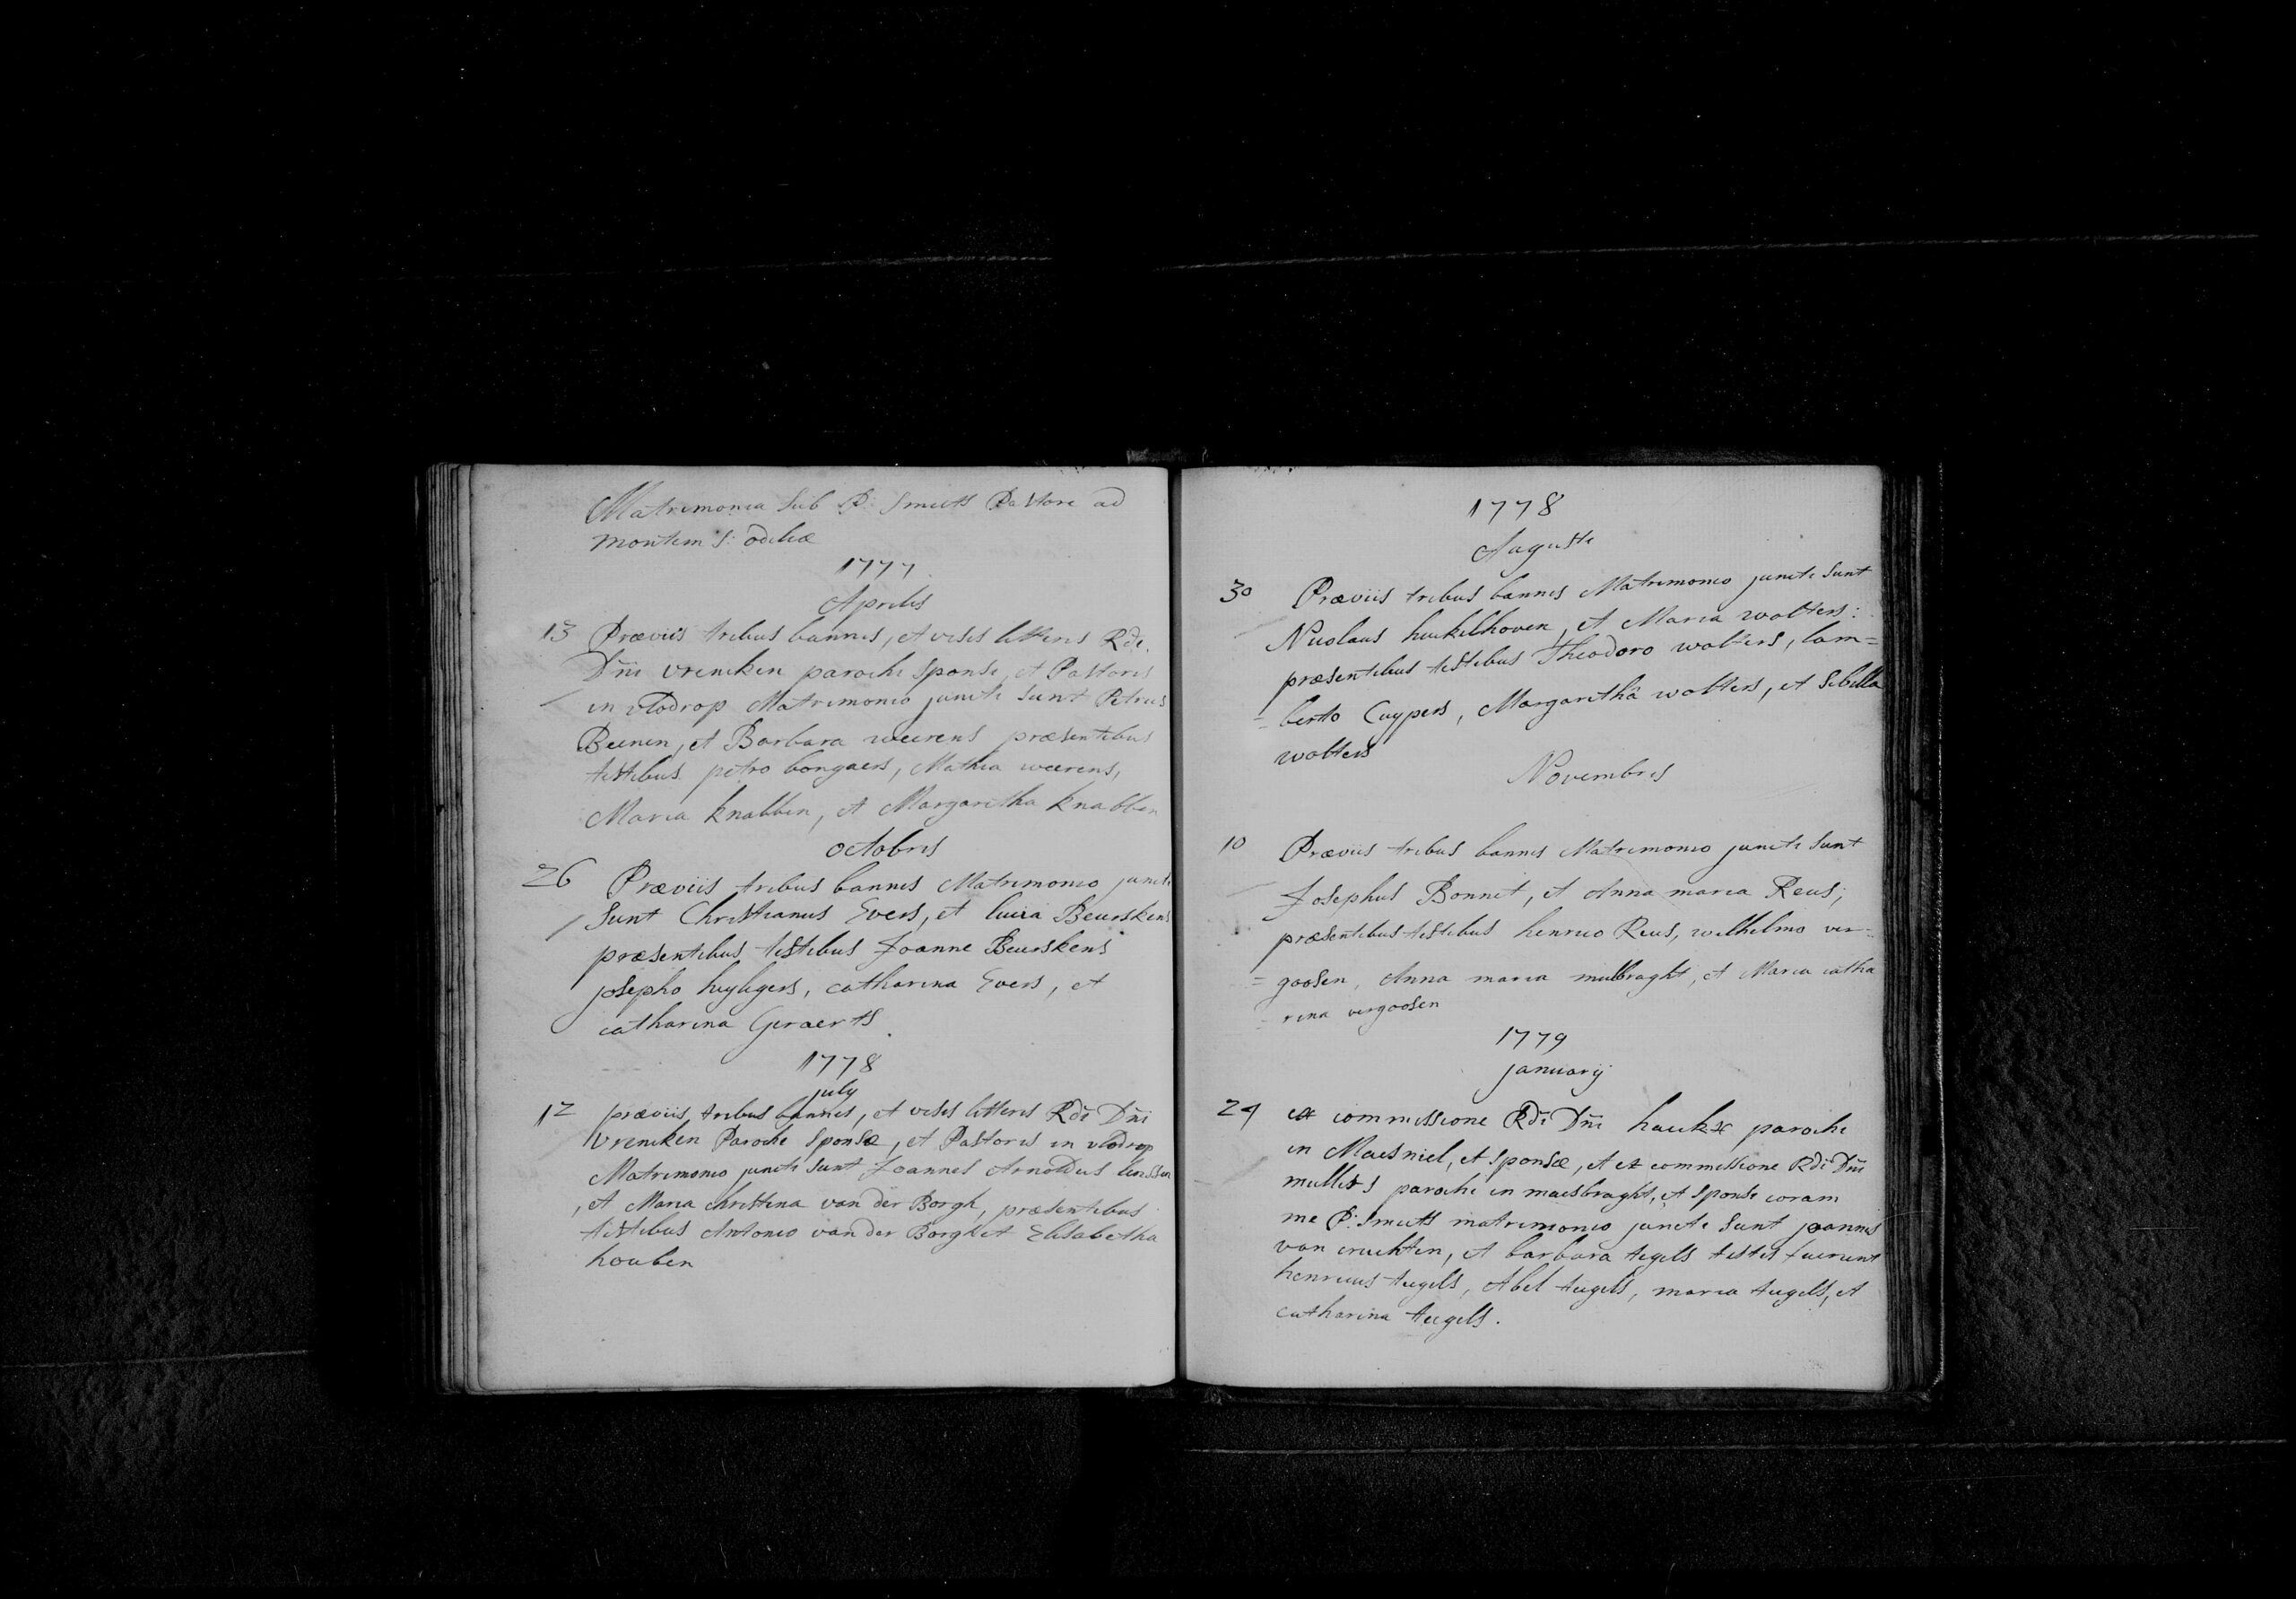 Matrimonia sub P: Smeets Pastore ad
montem S: odiliæ
1777
Aprilis
13 Præviis tribus bannis, et visis litteris Rdi
Dni vrencken parochi sponsi, et Pastoris
in vlodrop Matrimonio juncti sunt Petrus
Beenen, et Barbara weerens præsentibus
testibus petro bongaers, Mathia weerens,
Maria knabben, et Margaretha knabben
octobris
26 Præviis tribus bannis Matrimonio juncti
sunt Christianus Evers, et lucia Beurskens
præsentibus testibus Joanne Beurskens
josepho heyligers, catharina Evers, et
catharina Geraerts
1778
july
12 præviis tribus bannis, et visis litteris Rdi Dni
vrencken Parochi sponsæ, et Pastoris in vlodrop
Matrimonio juncti sunt Joannes Arnoldus
, et Maria christina van der Borgh, præsentibus
testibus Antonio van der Borgh et Elisabetha
houben
1778
Augusti
30 Præviis tribus bannis Matrimonio juncti sunt
Nicolaus huckelhoven, et Maria wolters:
præsentibus testibus Theodoro wolters, lam=
=berto Cuypers, Margarethâ wolters, et Sibilla
wolters
Novembris
10 Præviis tribus bannis Matrimonio juncti sunt
Josephus Bonnet, et Anna maria Reus;
præsentibus testibus henrico Reus, wilhelmo ver=
=goosen, Anna maria mulbraght, et Maria catha
=rina vergoosen
1779
januarij
24 ex commissione Rdi Dni parochi
in Maesniel, et sponsæ, et ex commissione Rdi Dni
parochi in maesbraght, et sponsi coram
me P: Smeets matrimonio juncti sunt joannes
van cruchten, et barbara tegels testes fuerunt
henricus teegels, Abel teegels, maria teegels, et
catharina teegels.